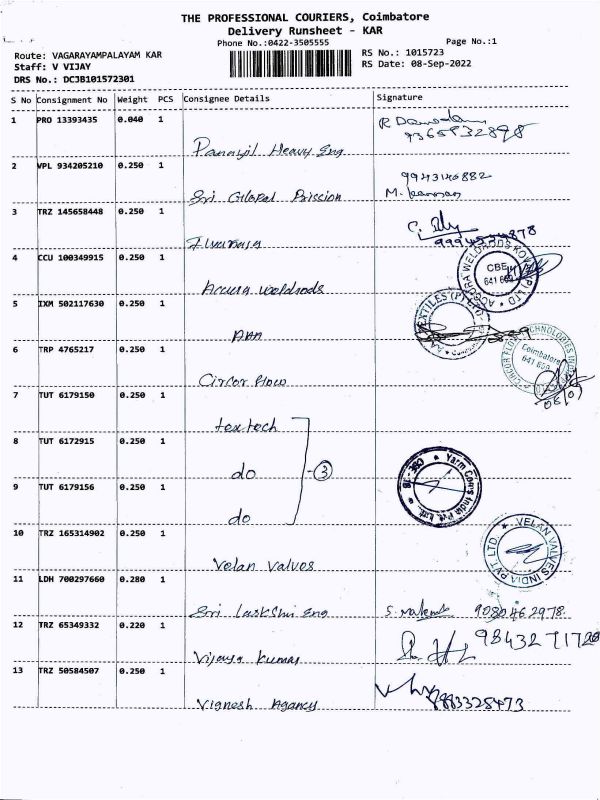 THE PROFESSIONAL COURIERS, Coimbatore
Delivery Runsheet - KAR
Phone No.:0422-3505555 Page No.:1
Route: VAGARAYAMPALAYAM KAR RS No.: 1015723
Staff: V VIJAY RS Date: 08-Sep-2022
DRS No.: DCJB101572301
S No Consignment No Weight PCS Consignee Details Signature
1 PRO 13393435 0.040 1
Heavy Eng
2 VPL 934205210 0.250 1 9943140882
Sri Glopal Prission M. kannan
3 TRZ 145658448 0.250 1
4 CCU 100349915 0.250 1
Accura weldrods
ACCURA WELDRODS KOVAI (P) LTD
CBE
5 IXM 502117630 0.250 1
TEXTILES (P) LTD
6 TRP 4765217 0.250 1
Circor flow
CIRCOR FLOW TECHNOLOGIES INDIA
Coimbatore
7 TUT 6179150 0.250 1
textech
8 TUT 6172915 0.250 1
do 3
9 TUT 6179156 0.250 1
do
Yarm Coms India Pvt. Ltd. CBE-18
10 TRZ 165314902 0.250 1
Velan Valves
VELAN VALVES INDIA PVT LTD.
11 LDH 700297660 0.280 1
Sri Lakshmi Eng 9080462978
12 TRZ 65349332 0.220 1 9843271720
Vijaya kumar
13 TRZ 50584507 0.250 1
Vignesh Agancy